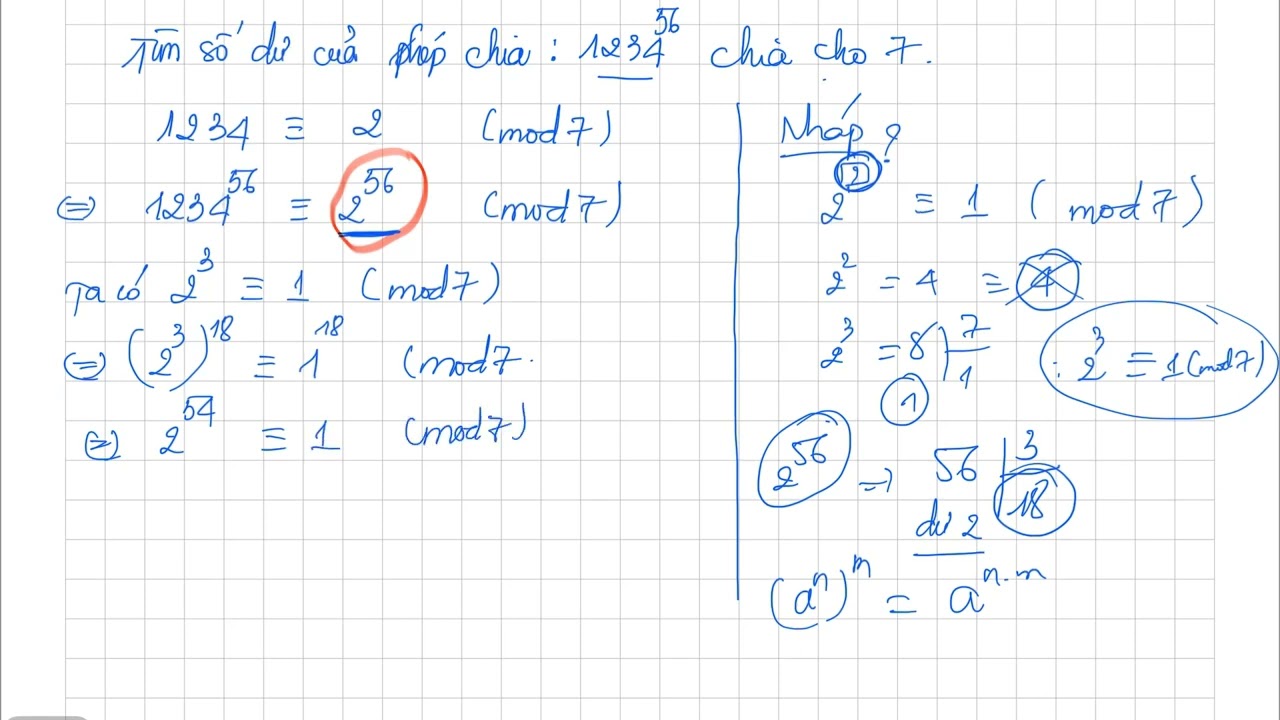 Tìm số dư của phép chia : 1234^56 chia cho 7.
1234 ≡ 2 (mod 7)
⇒ 1234^56 ≡ 2^56 (mod 7)
Ta có 2^3 ≡ 1 (mod 7)
⇒ (2^3)^18 ≡ 1^18 (mod 7.
⇒ 2^54 ≡ 1 (mod 7)
Nháp ?
2^2 ≡ 1 ( mod 7 )
2^2 = 4 ≡ 4
2^3 = 8 | 7
1 1
: 2^3 ≡ 1 (mod 7)
2^56 ⇒ 56 | 3
dư 2 18
(a^n)^m = a^n.m